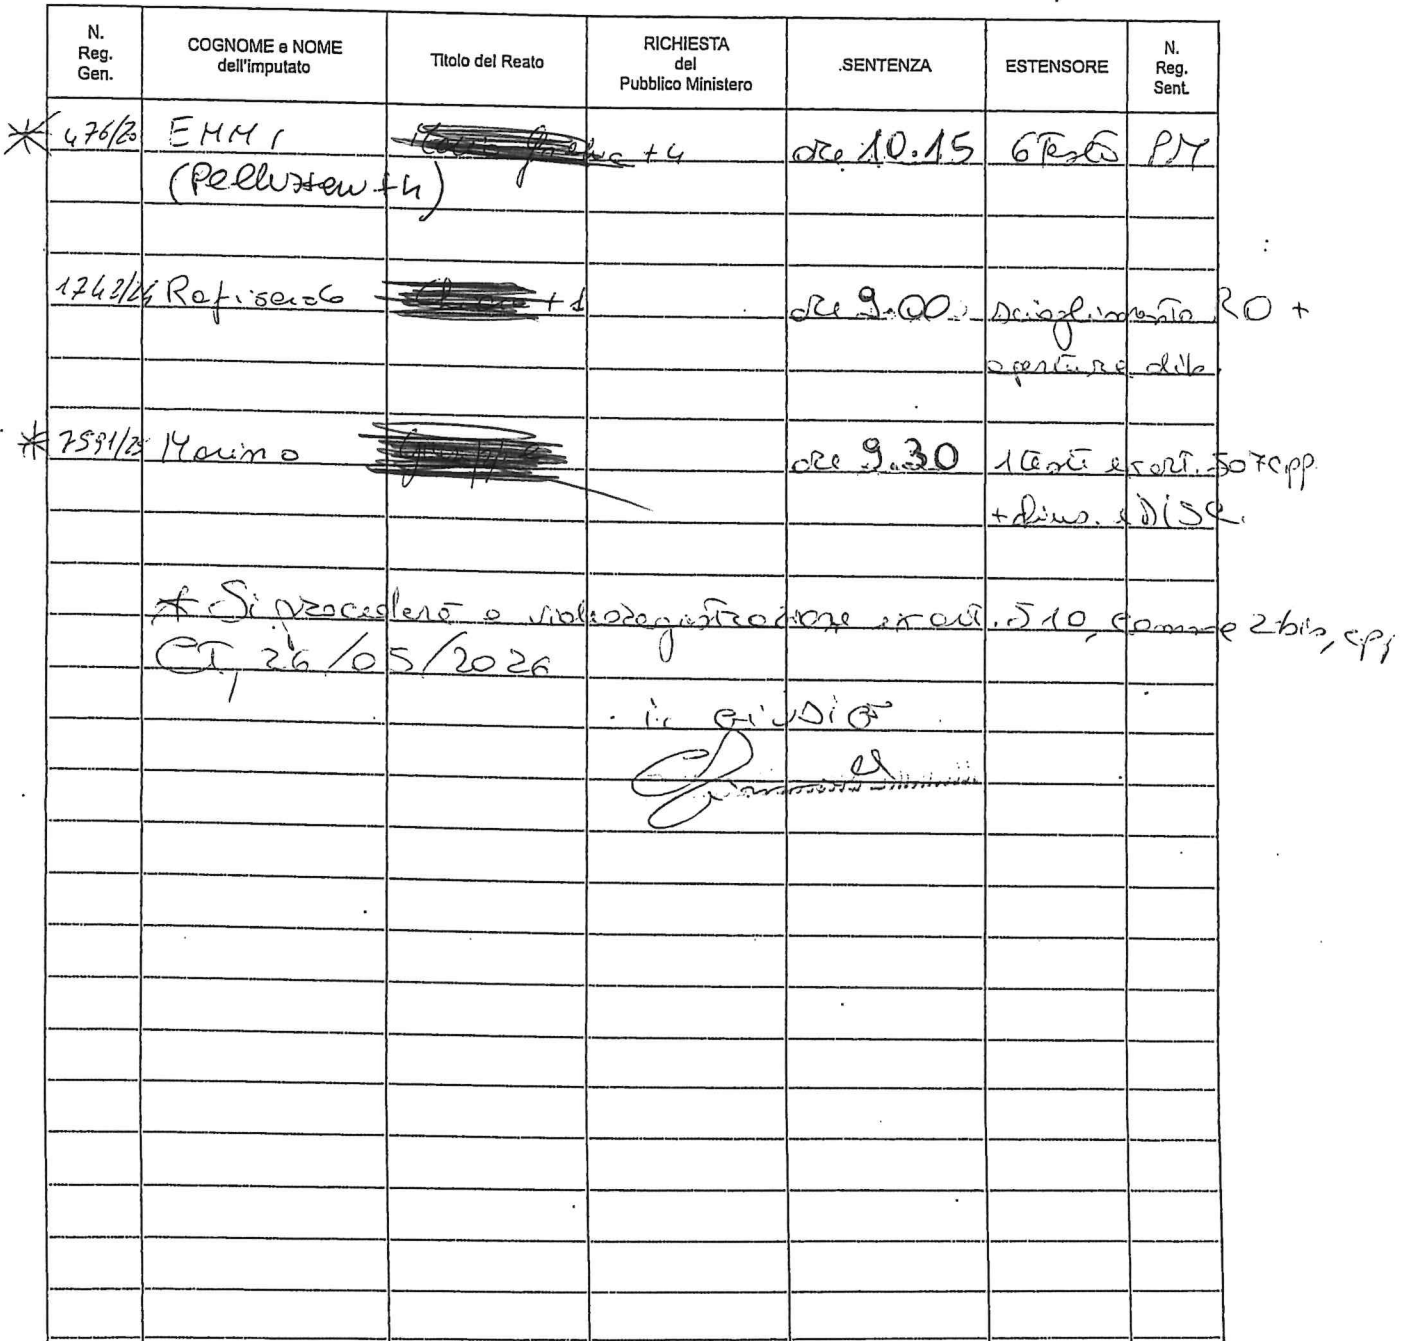 N. Reg. Gen. COGNOME e NOME dell'imputato Titolo del Reato RICHIESTA del Pubblico Ministero SENTENZA ESTENSORE N. Reg. Sent.
* 476/20 EMMI + 4 ore 10.15 6 Testi PM
+ 4)
1742/24 + 1 ore 9.00 scioglimento RO +
apertura dib.
* 7591/25 Marino ore 9.30 1 teste ex art. 507 cpp
+ DISC.
* Si procederà a videoregistrazione ex art. 510, comma 2 bis, cpp
CT, 26/05/2026
il GIUDICE